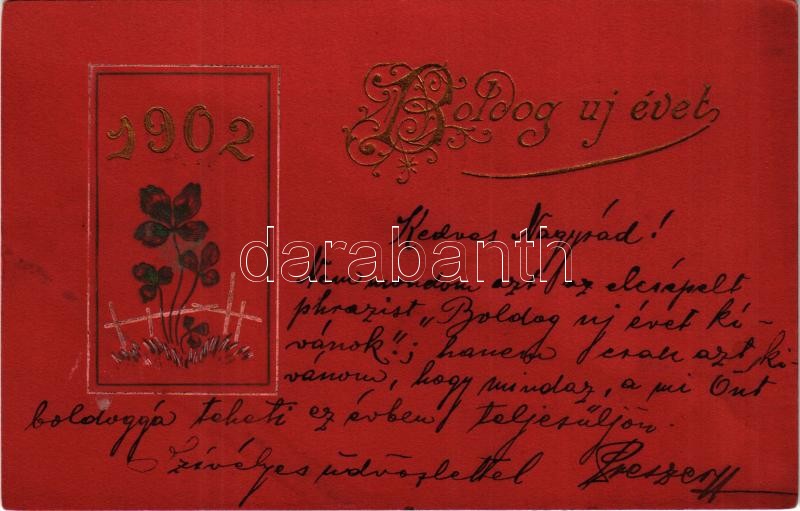 1902
Boldog uj évet
Kedves Nagysád!
Nem mondom azt az elcsépelt
phrazist „Boldog uj évet kí-
vánok"; hanem csak azt kí-
vánom, hogy mindaz, a mi Önt
boldoggá teheti ez évben teljesüljön.
Szívélyes üdvözlettel
darabanth